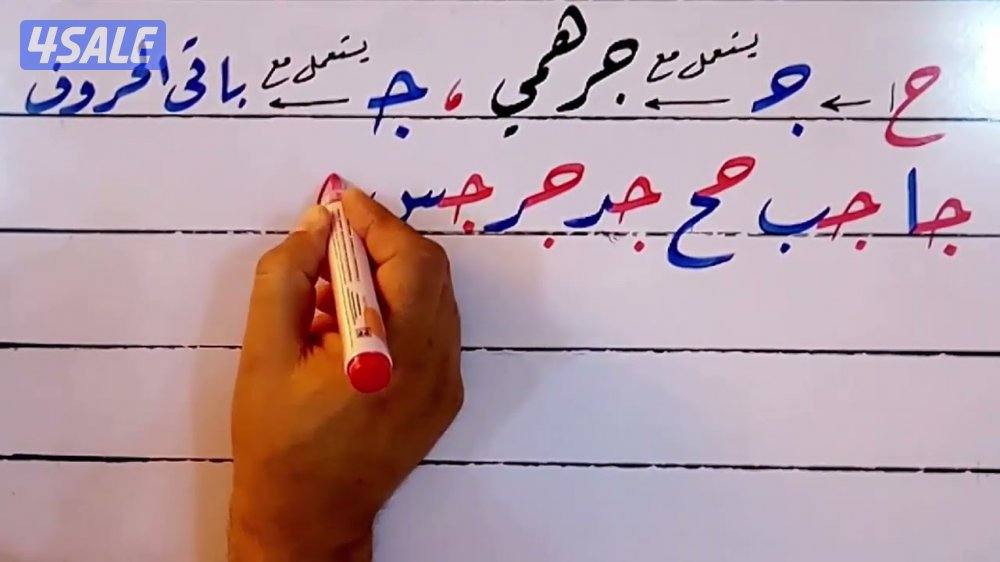 4SALE
ح ← حـ يستعمل مع ← حرهمي ، حـ يستعمل مع ← باقي الحروف
حا حب حح حد حر حس